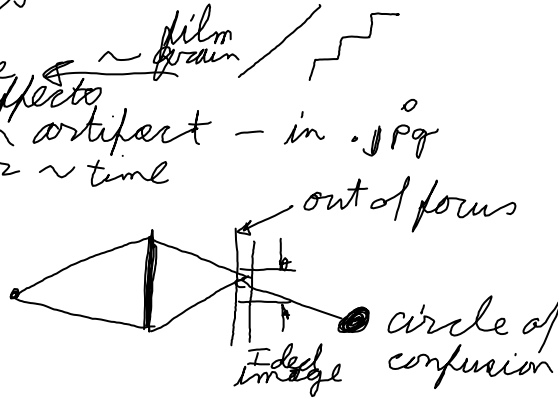 ~ film
grain
effects
artifact - in .jpg
~ time
out of focus
circle of
confusion
Ideal
image